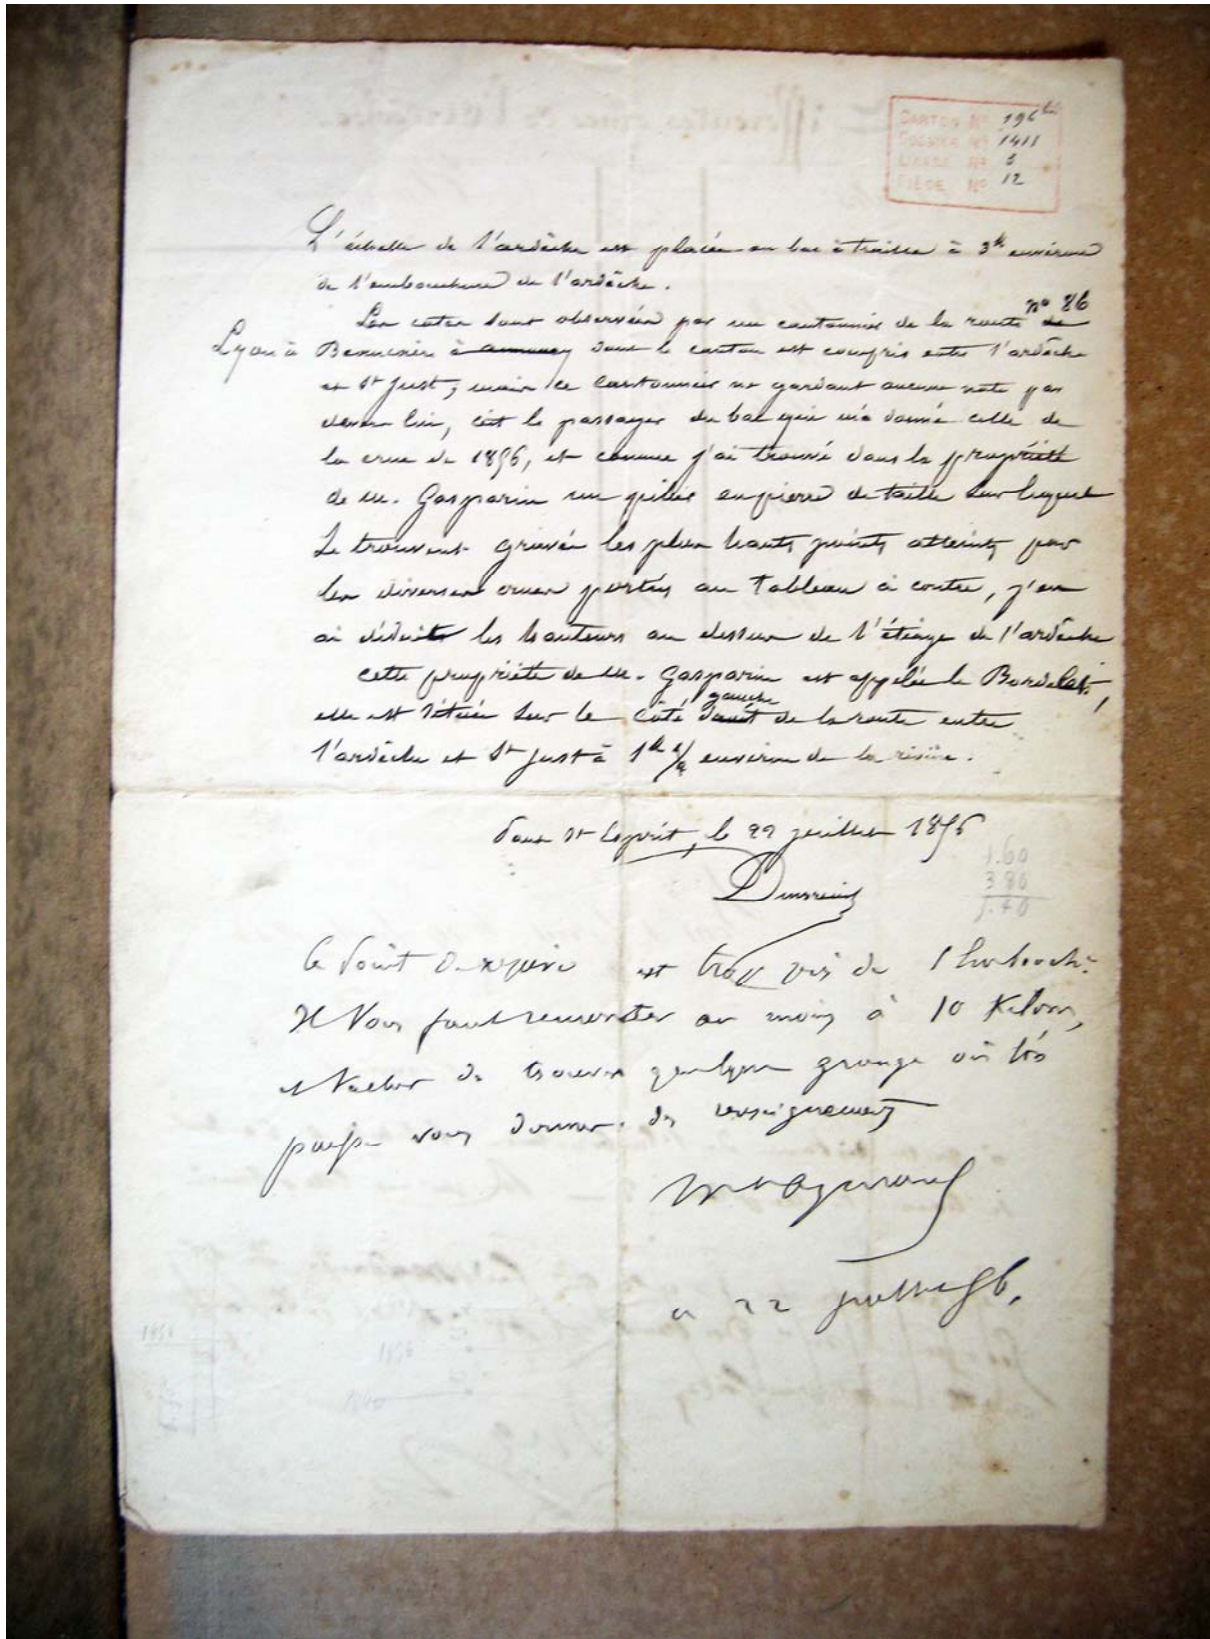 CARTON No 196 bis
DOSSIER No 1411
LIASSE No 3
PIÈCE No 12
L'échelle de l'ardèche est placée au bac à traille à 3k environ
de l'embouchure de l'ardèche.
Les cotes sont observées par un cantonnier de la route de no 86
Lyon à Beaucaire à dont le canton est compris entre l'ardèche
et St Just, mais ce cantonnier ne gardant aucune note par
devers lui, c'est le passager du bac qui m'a donné celle de
la crue de 1856, et comme j'ai trouvé dans la propriété
de m. Gasparin un pilier en pierre de taille sur lequel
se trouvent gravés les plus hauts points atteints par
les diverses crues portées au tableau ci contre, j'en
ai déduit les hauteurs au dessus de l'étiage de l'ardèche
cette propriété de m. Gasparin est appelée le Bordelet,
elle est située sur le côté droit gauche de la route entre
l'ardèche et St Just à 1k environ de la rivière.
Pont St Esprit, le 22 juillet 1856
1.60
3.80
5.40
Ce point de repère est trop près de l'embouche
Il vous faut remonter au moins à 10 Kilom,
et tacher de trouver quelque grange où l'on
puisse vous donner des renseignements
22 juillet 56.
1856
1856
1840